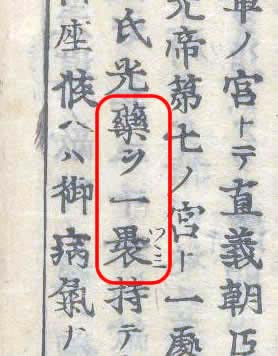 軍ノ宮トテ直義朝臣
先帝第七ノ宮ト一處
氏光藥ヲ一裹ツヽミ持テ
座候ハハ御病氣ナ